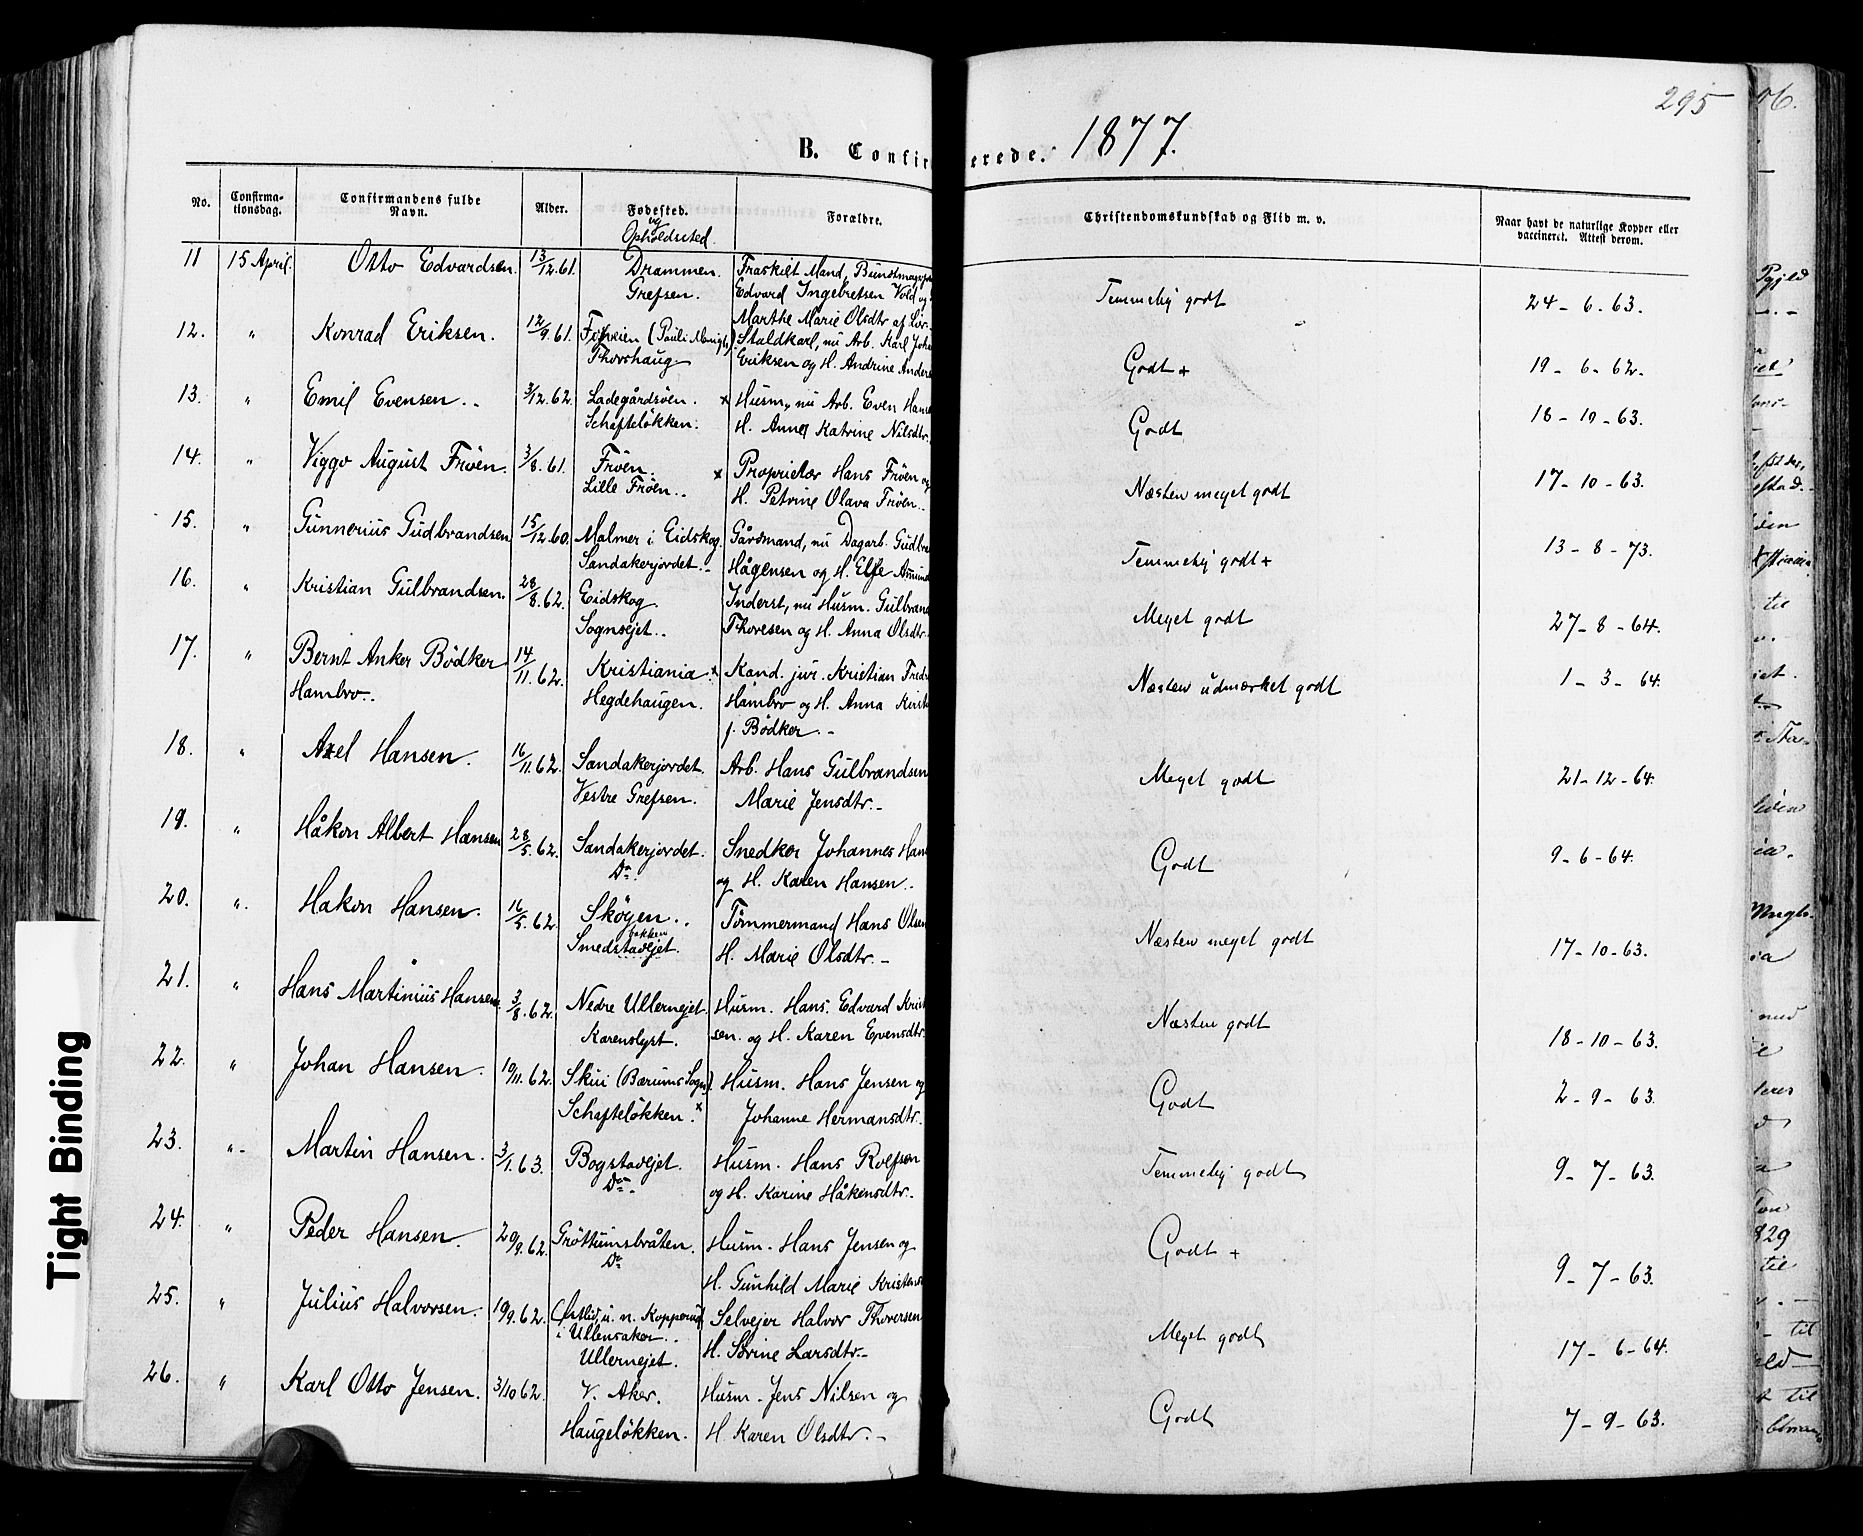 295
B. Confir
erede. 1877.
No. Confirma-
tionsdag. Confirmandens fulde
Navn. Alder. Fødested. Forældre. Christendomskundskab og Flid m. v. Naar havt de naturlige Kopper eller
vaccineret. Attest derom.
og
Opholdssted.
11 15 April. Otto Edvardsen. 13/12.61. Drammen. Fraskilt Mand,
Grefsen. Edvard Ingebretsen Vold og
Marthe Marie Olsdtr af
Temmelig godt 24-6.63.
12. " Konrad Eriksen. 12/9.61. Staldkarl, nu Arb. Karl Joha
Thorshaug Eriksen og H. Andrine Anders
Godt + 19-6-62.
13. " Emil Evensen.. 3/12.62. Ladegårdsöen. x Husm., nu Arb. Even Hans
Schafteløkken. H. Anne Katrine Nilsdtr.
Godt 18-10-63.
14. " Viggo August Fröen. 3/8.61. Fröen. x Proprietær Hans Fröen og
Lille Fröen.. H. Petrine Olava Fröen..
Næsten meget godt 17-10-63.
15. " Gunnerius Gudbrandsen 15/12.60. Malmer i Eidskog. Gårdmand, nu Dagarb. Gudbra
Sandakerjordet.- Hågensen og H. Else Amund
Temmelig godt + 13-8-73.
16. " Kristian Gulbrandsen. 28/8.62. Eidskog. Inderst, nu Husm. Gulbrand
Sognsejet.. Thoresen og H. Anna Olsdtr.
Meget godt 27-8-64.
17. " Bernt Anker Bödker 14/11.62. Kristiania. x Kand. jur. Kristian Fredr
Hambro.. Hegdehaugen. Hambro og H. Anna Krist
f. Bödker.-
Næsten udmærket godt 1-3-64.
18. " Axel Hansen. 16/11.62. Sandakerjordet. Arb. Hans Gulbrandsen
Vestre Grefsen. Marie Jensdtr.-
Meget godt 21-12-64.
19. " Håkon Albert Hansen 28/5.62. Sandakerjordet. Snedker Johannes Han
Do. og H. Karen Hansen..
Godt 9-6-64.
20. " Hakon Hansen. 16/5.62. Skøyen.. Tømmermand Hans Olsen
bakken
Smedstadejet. H. Marie Olsdtr.-
Næsten meget godt 17-10-63.
21. " Hans Martinius Hansen. 3/8.62. Nedre Ullernejet. Husm. Hans Edvard Krist
Karenslyst. sen. og H. Karen Evensdtr.
Næsten godt 18-10-63.
22. " Johan Hansen. 19/11.62. Skui (Bærums Sogn). Husm. Hans Jensen og
Schafteløkken. x Johanne Hermansdtr..
Godt 2-9-63.
23. " Martin Hansen. 3/1.63. Bogstadejet. Husm. Hans Rolfsen
Do. og H. Karine Håkensdtr..
Temmelig godt 9-7-63.
24. " Peder Hansen. 20/9.62. Gröttumsbråten. Husm. Hans Jensen og
Do. H. Gunhild Marie Kristens
Godt + 9-7-63.
25. " Julius Halvorsen. 19/9.62. Østlid, u. n. Kopperud Selvejer Halvor Thoversen
i Ullensaker..
Ullernejet. H. Sörine Larsdtr.-
Meget godt 17-6-64.
26. " Karl Otto Jensen. 3/10 62. V. Aker. Husm. Jens Nilsen og
Haugeløkken. H. Karen Olsdtr.-
Godt 7-9-63.
Tight Binding